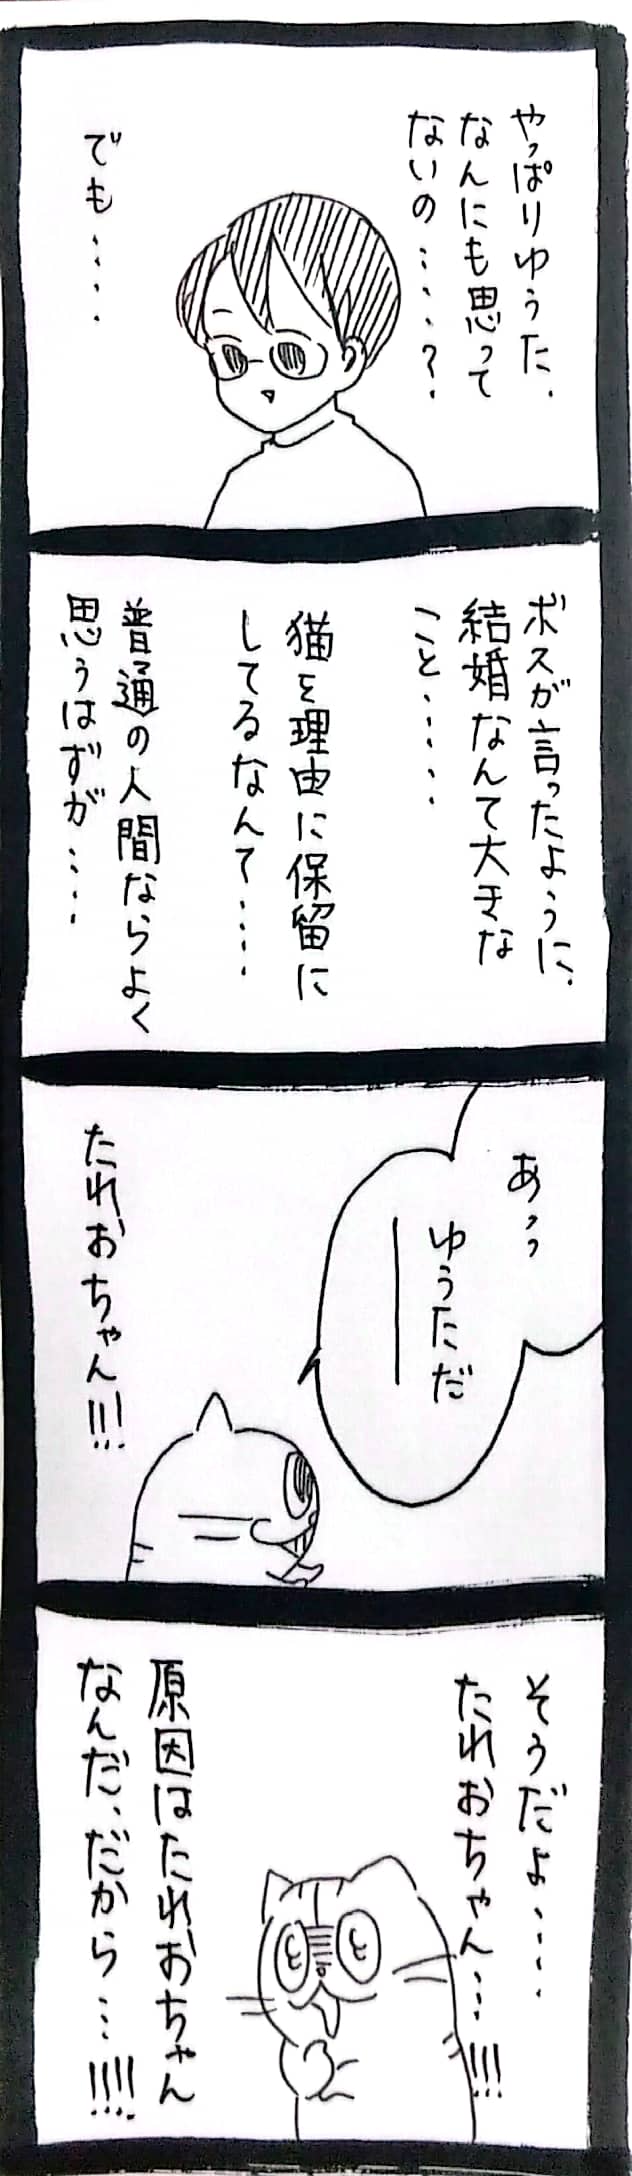 やっぱりゆうた、
なんにも思って
ないの・・・・・?
でも・・・・・
ボスが言ったように、
結婚なんて大きな
こと・・・・・
猫を理由に保留に
してるなんて・・・・
普通の人間ならよく
思うはずが・・・・
あっっ
ゆうただ
――
たれおちゃん!!!
そうだよ・・・・
たれおちゃん・・・!!!
原因はたれおちゃん
なんだ、だから・・・!!!!